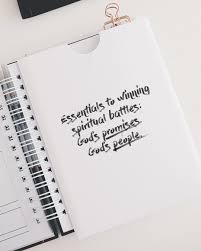 Essentials to winning
spiritual battles:
God's promises
God's people.